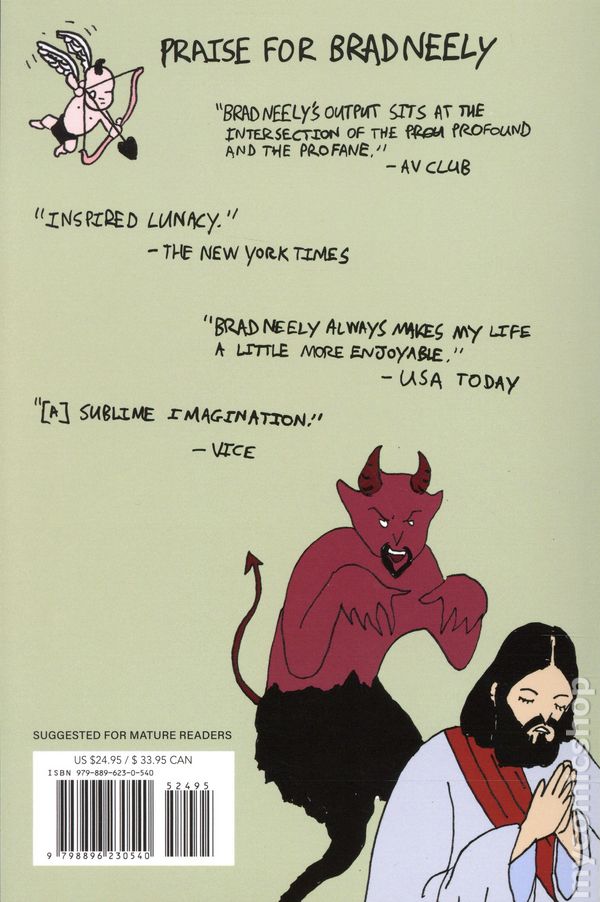 PRAISE FOR BRAD NEELY
"BRAD NEELY'S OUTPUT SITS AT THE
INTERSECTION OF THE PROFOUND
AND THE PROFANE."
- AV CLUB
"INSPIRED LUNACY."
- THE NEW YORK TIMES
"BRAD NEELY ALWAYS MAKES MY LIFE
A LITTLE MORE ENJOYABLE."
- USA TODAY
"[A] SUBLIME IMAGINATION."
- VICE
SUGGESTED FOR MATURE READERS
US $24.95 / $ 33.95 CAN
ISBN 979-889-623-0-540
52495
9 798896 230540
mycomicshop